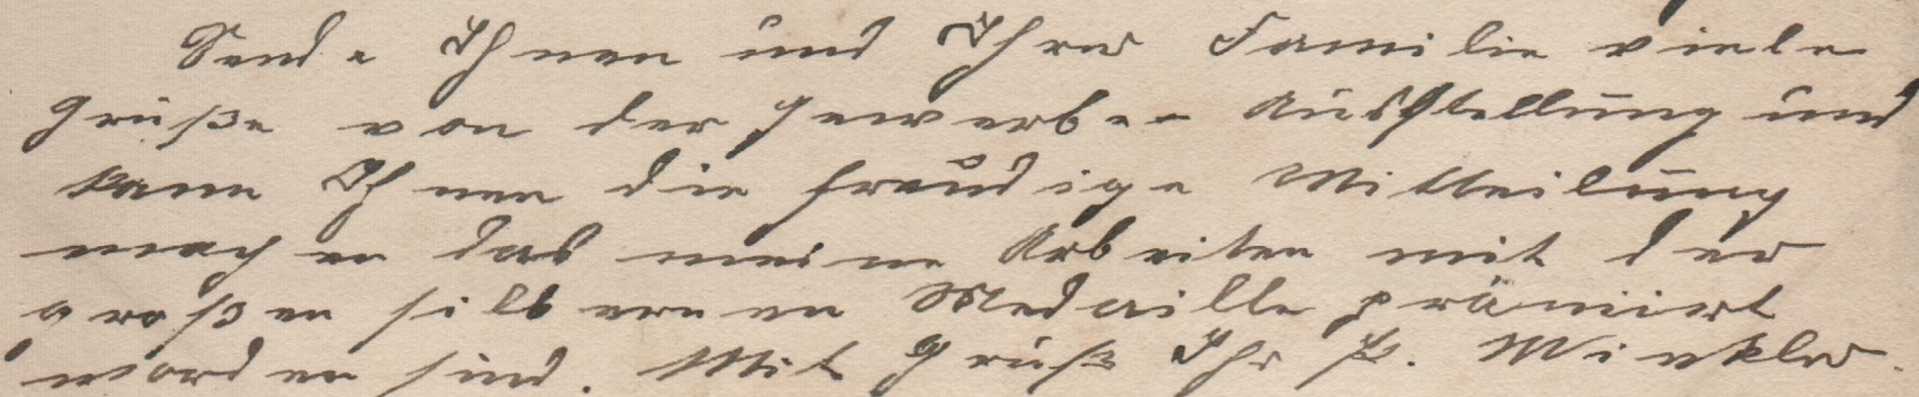 Sende Ihnen und Ihrer Familie viele
Grüße von der Gewerbe-Ausstellung und
kann Ihnen die freudige Mitteilung
machen das meine Arbeiten mit der
großen silbernen Medaille prämiert
worden sind. Mit Gruß Ihr P. Winkler.